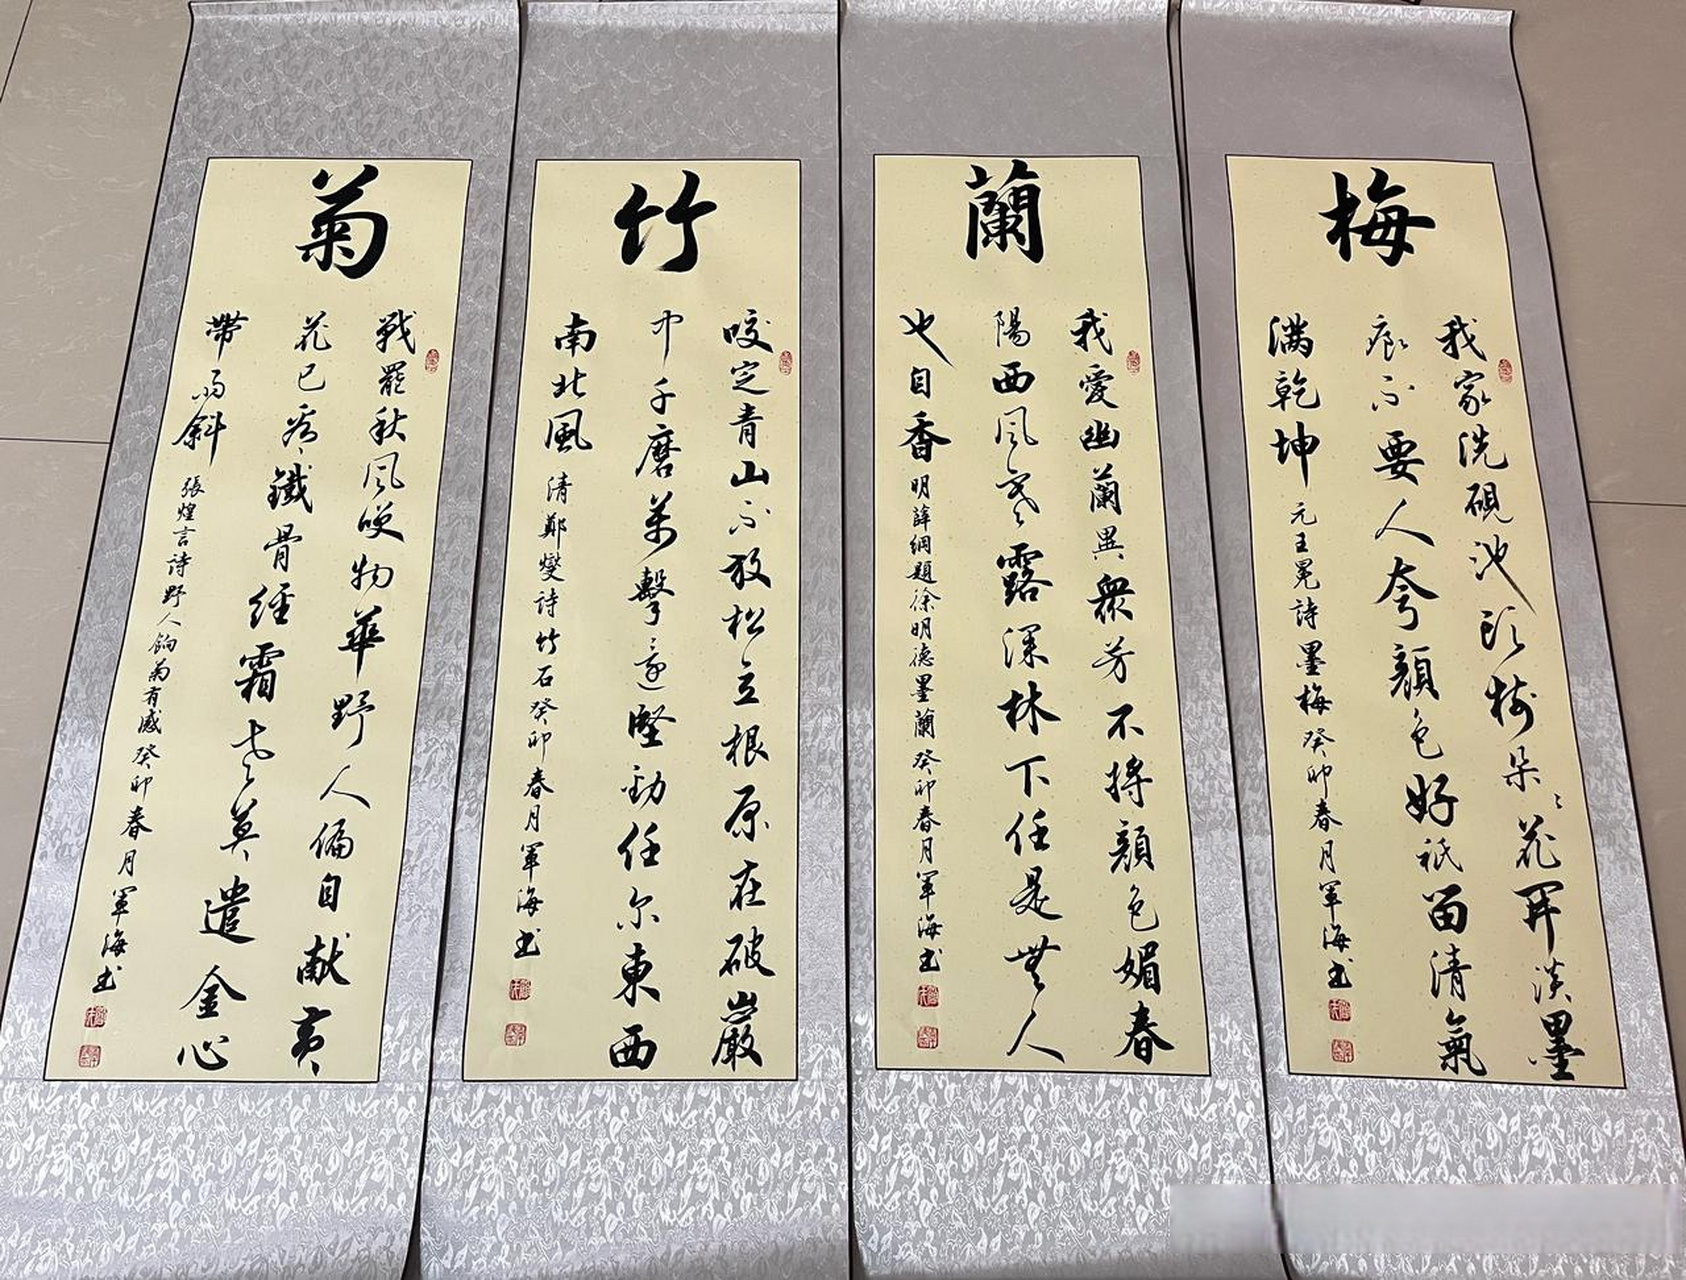 梅
我家洗硯池頭樹朵〻花開淡墨
痕不要人夸顏色好祇留清氣
满乾坤
元王冕詩墨梅癸卯春月軍海书
蘭
我愛幽蘭異衆芳不將顏色媚春
陽西风寒露深林下任是無人
也自香
明薛綱題徐明德墨蘭癸卯春月軍海书
竹
咬定青山不放松立根原在破巖
中千磨萬擊还堅勁任尔東西
南北風
清鄭燮詩竹石癸卯春月軍海书
菊
戰罷秋风笑物華野人偏自献黄
花已看鐵骨经霜老莫遣金心
帶雨斜
張煌言詩野人餉菊有感癸卯春月軍海书